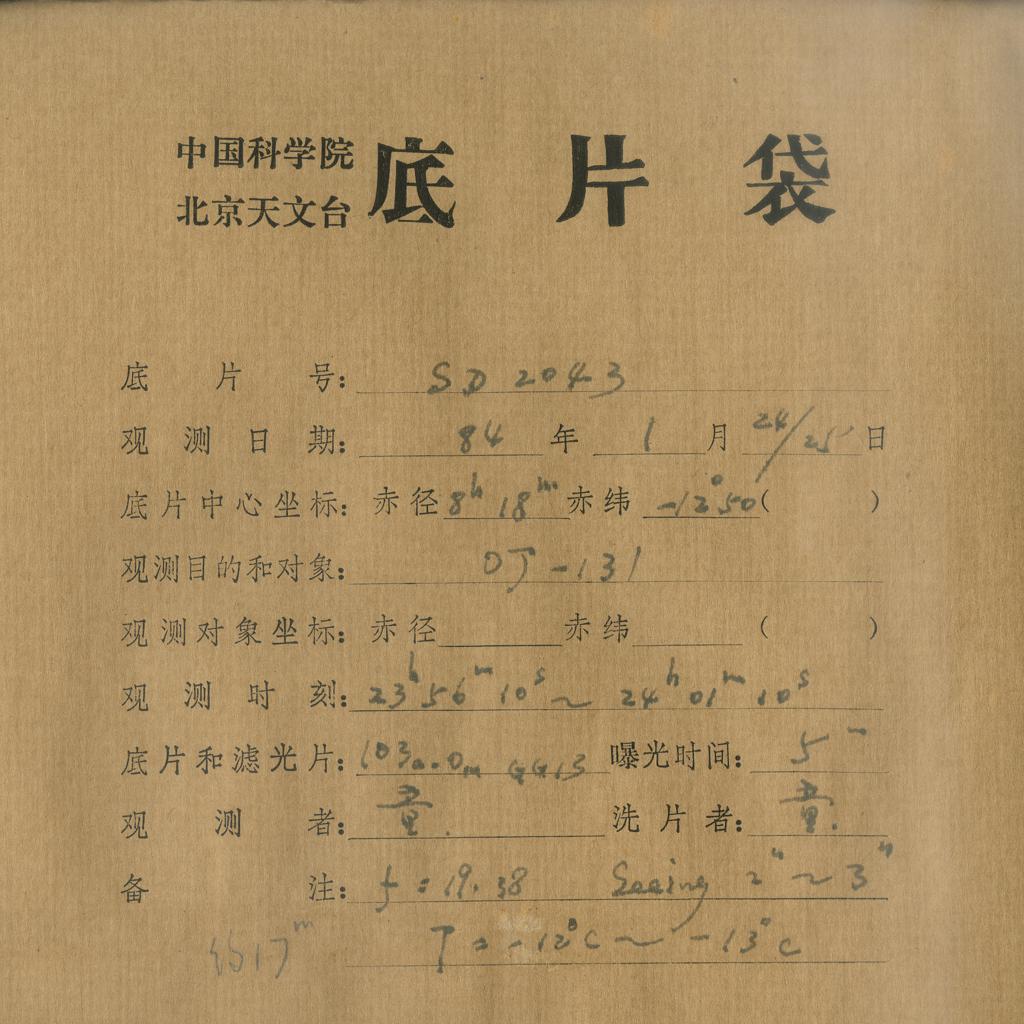 中国科学院
北京天文台
底片袋
底片号: SD 2043
观测日期: 84 年 1 月 24/25 日
底片中心坐标: 赤径 8h 18m 赤纬 -12°50 ( )
观测目的和对象: OJ-131
观测对象坐标: 赤径 赤纬 ( )
观测时刻: 23h 56m 10s ~ 24h 01m 10s
底片和滤光片: 103a.O GG13 曝光时间: 5m
观测者: 童. 洗片者: 童.
备注: f: 19.38 Seeing 2" ~ 3"
约17m T = -12°C ~ -13°C